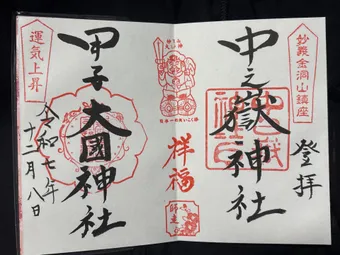 妙義金洞山鎮座
登拝
中之嶽神社
祥福
日本一の大こく様
甲子大國神社
運気上昇
令和七年
十二月八日